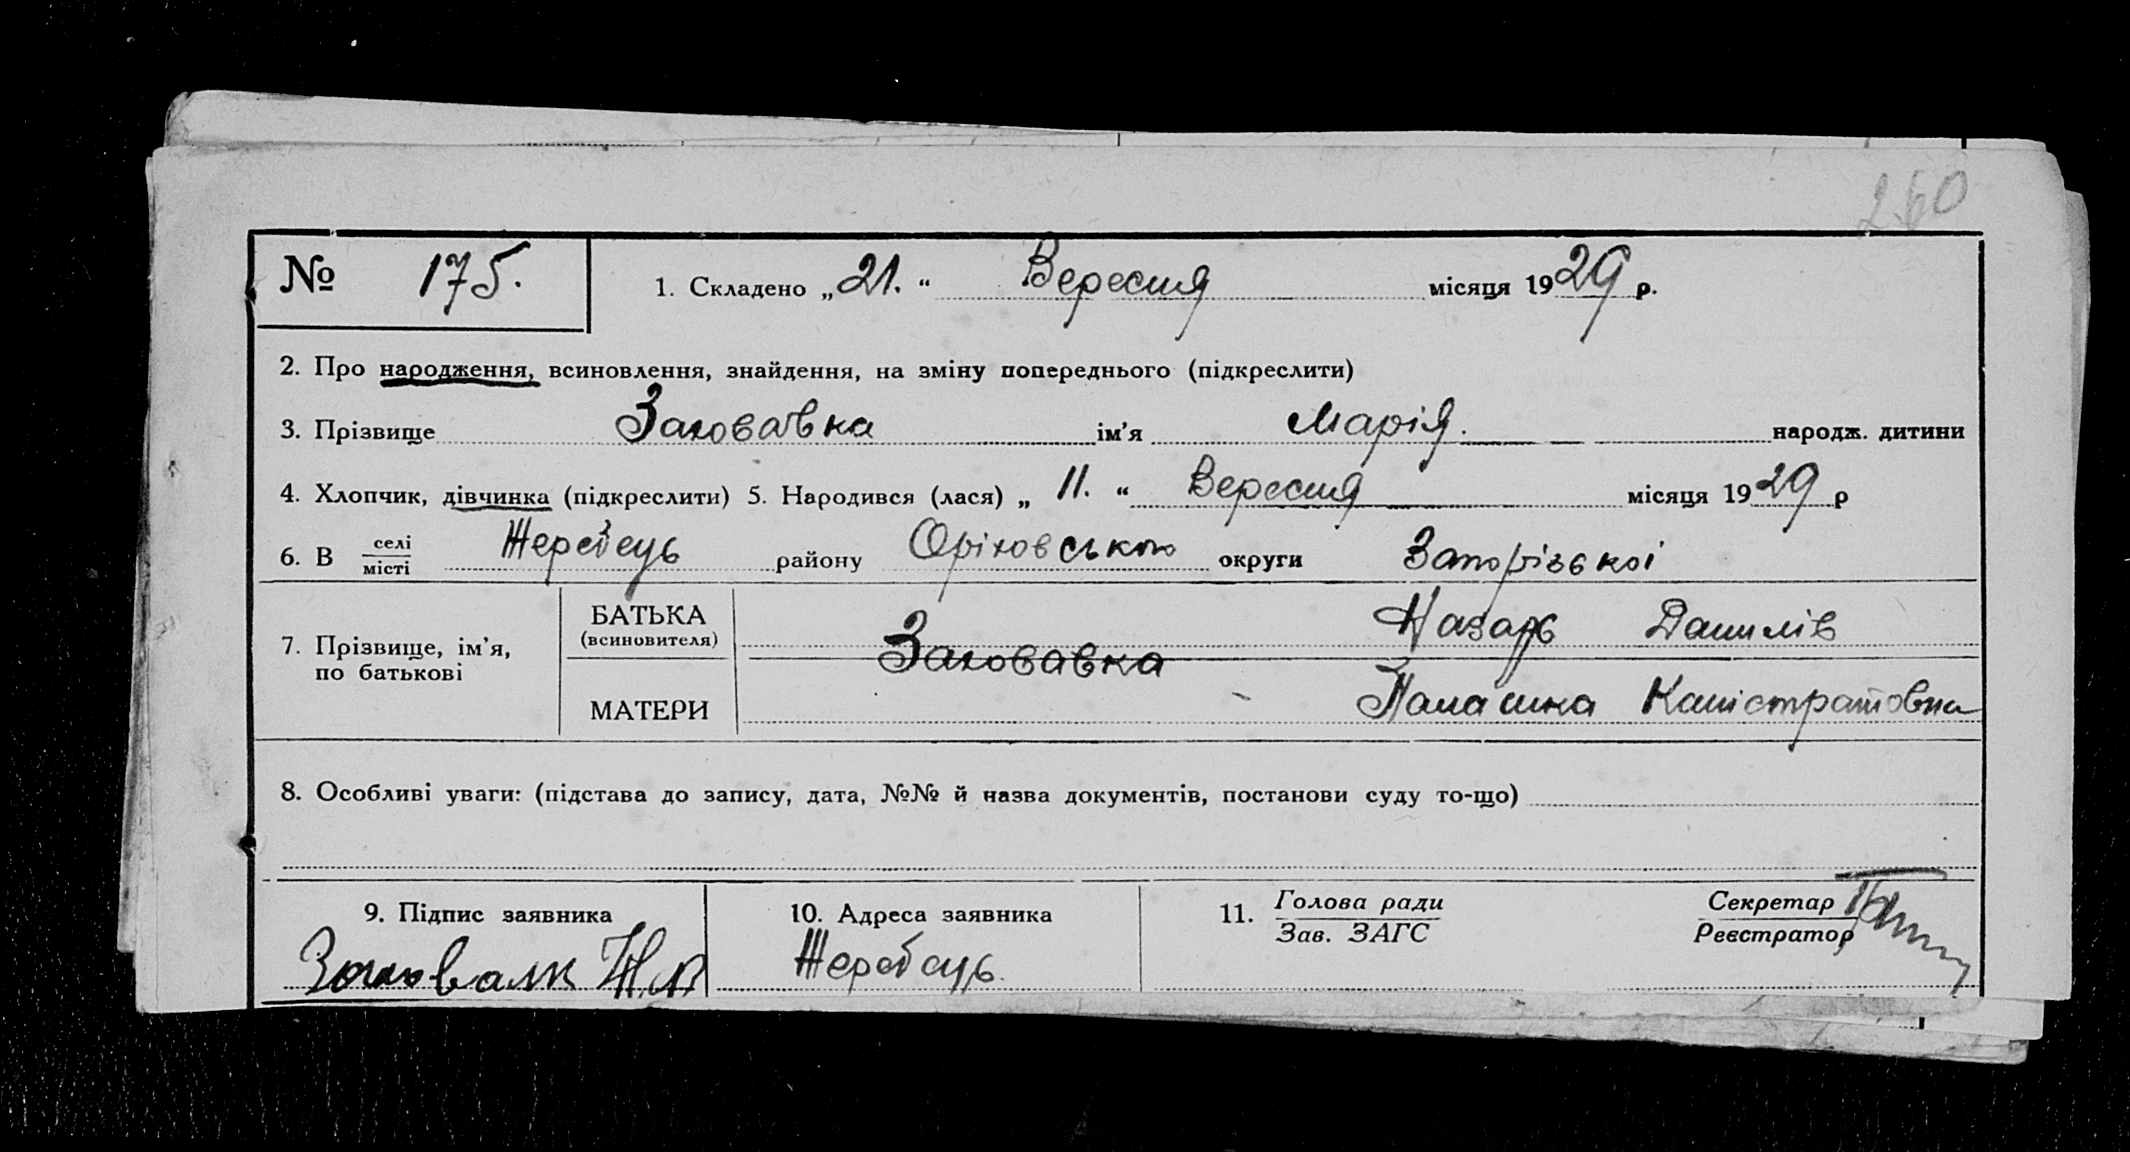 260
№ 175. 1. Складено „21.“ Вересня місяця 1929 р.
2. Про народження, всиновлення, знайдення, на зміну попереднього (підкреслити)
3. Прізвище Заховавка ім’я Марія. народж. дитини
4. Хлопчик, дівчинка (підкреслити) 5. Народився (лася) „11.“ Вересня місяця 1929 р
6. В селі місті Жеребець району Оріховського округи Запорізської
7. Прізвище, ім’я, по батькові
БАТЬКА (всиновителя) Заховавка Назарь Данилів
МАТЕРИ Палашка Каністратовна
8. Особливі уваги: (підстава до запису, дата, №№ й назва документів, постанови суду то-що)
9. Підпис заявника 10. Адреса заявника 11. Голова ради Секретар
Зав. ЗАГС Реєстратор
Жеребець